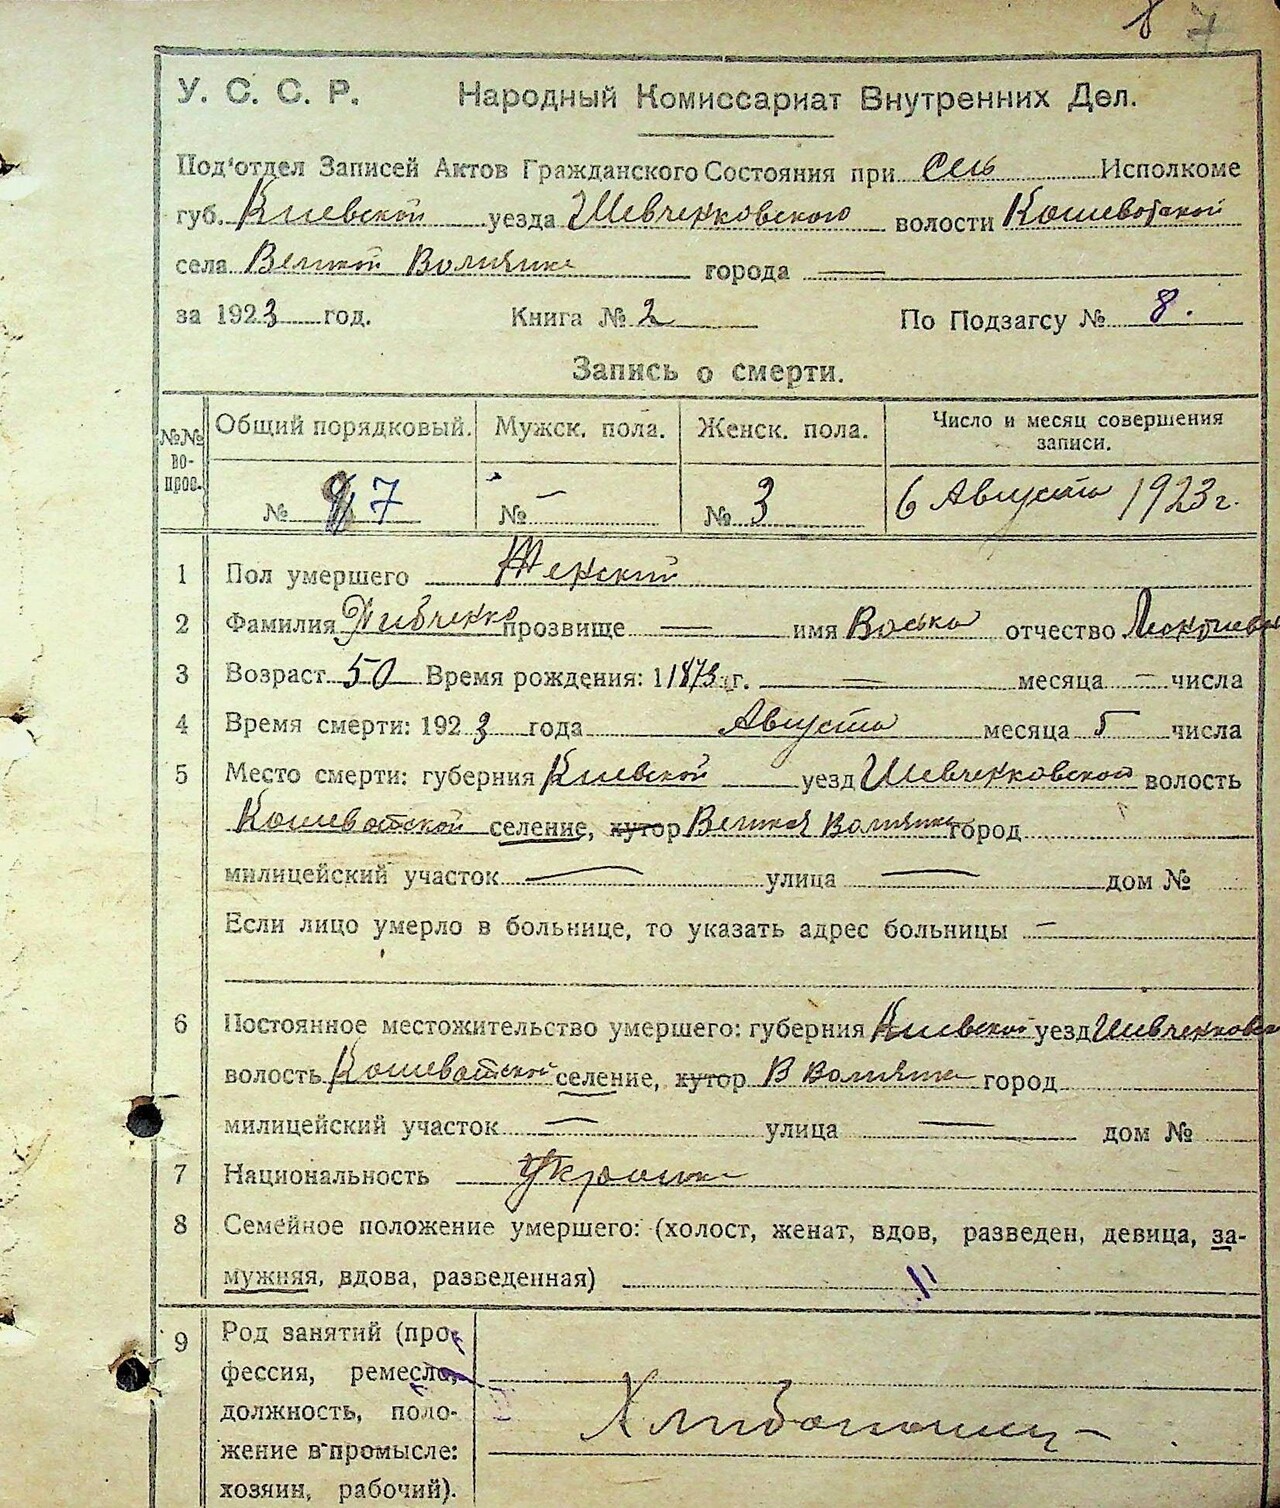 8 7
У. С. С. Р. Народный Комиссариат Внутренних Дел.
Под'отдел Записей Актов Гражданского Состояния при Сель Исполкоме
губ. Киевской уезда Шевченковского волости Кошеватской
села Великой Вовнянки города —
за 1923 год. Книга № 2 По Подзагсу № 8.
Запись о смерти.
№№ во- прос. Общий порядковый. Мужск. пола. Женск. пола. Число и месяц совершения записи.
№ 7 № — № 3 6 Августа 1923 г.
1 Пол умершего Женский
2 Фамилия прозвище — имя отчество
3 Возраст 50 Время рождения: 11873 г. — месяца — числа
4 Время смерти: 1923 года Августа месяца 5 числа
5 Место смерти: губерния Киевской уезд Шевченковской волость
Кошеватской селение, хутор Великая Вовнянка город
милицейский участок — улица — дом №
Если лицо умерло в больнице, то указать адрес больницы —
6 Постоянное местожительство умершего: губерния Киевской уезд Шевченковско
волость Кошеватской селение, хутор В Вовнянка город
милицейский участок — улица — дом №
7 Национальность Украинка
8 Семейное положение умершего: (холост, женат, вдов, разведен, девица, за-
мужняя, вдова, разведенная)
9 Род занятий (про-
фессия, ремесло,
должность, поло-
жение в промысле:
хозяин, рабочий).
Хлибопашец